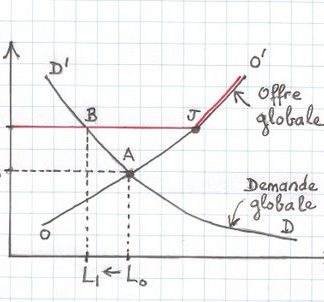 D'
O'
B
J
Offre
globale
A
Demande
globale
O
D
L₁ ← L₀